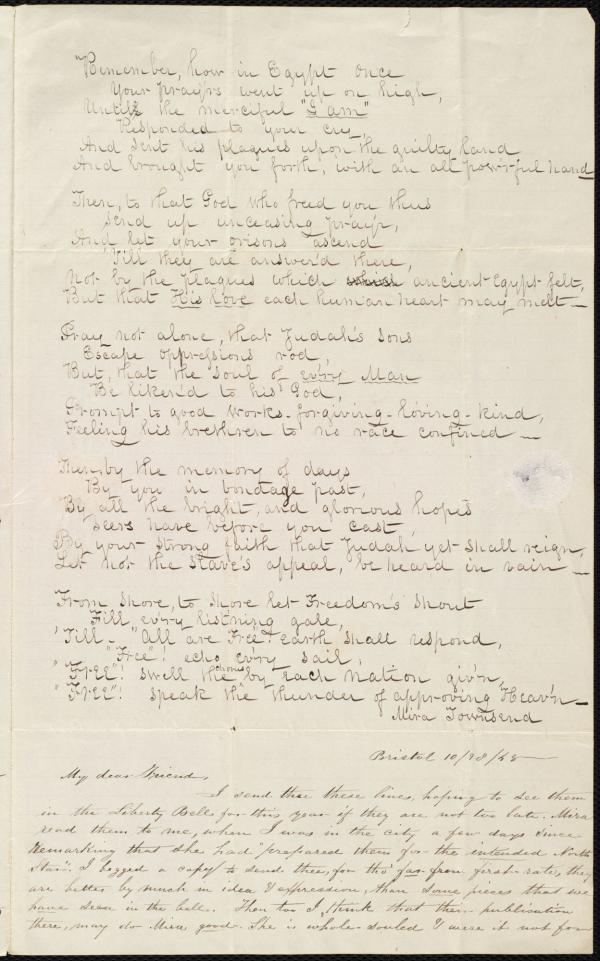 "Remember, how in Egypt once
Your pray'rs went up on high,
Until the merciful "I am"
Responded to your cry_
And sent his plagues upon the guilty land
And brought you forth, with an all pow'rful hand

Then, to that God who freed you thus
Send up unceasing pray'r,
And let your orisons ascend
'Till they are answer'd there,
Not by the plagues which which ancient Egypt felt,
But that His love each human heart may melt _

Pray not alone, that Judah's sons
Escape oppressions rod,
But, that the soul of ev'ry Man
Be liken'd to his God,
Prompt to good works - forgiving - loving - kind,
Feeling his brethren to no race confined _

Then, by the memory of days
By you in bondage past,
By all the bright, and glorious hopes
Seers have before you cast,
By your strong faith that Judah yet shall reign,
Let not the slave's appeal, be heard in vain _

From shore, to shore let Freedom's shout
Fill ev'ry list'ning gale,
'Till - "All are Free"! earth shall respond,
"Free"! echo ev'ry sail,
"Free"! swell the chorus by each Nation giv'n,
"Free"! speak the thunder of approving Heav'n _
Mira Townsend

Bristol 10/28/48
My dear Friend,
I send thee these lines, hoping to see them
in the Liberty Bell for this year if they are not too late. Mira
read them to me, when I was in the city a few days since
remarking that she had "prepared them for the intended North
Star". I begged a copy to send thee, for tho' far from first-rate, they
are better by much in idea & expression, than some pieces that we
have seen in the bell. Then too I think that their publication
there, may do Mira good. She is whole-souled & were it not for